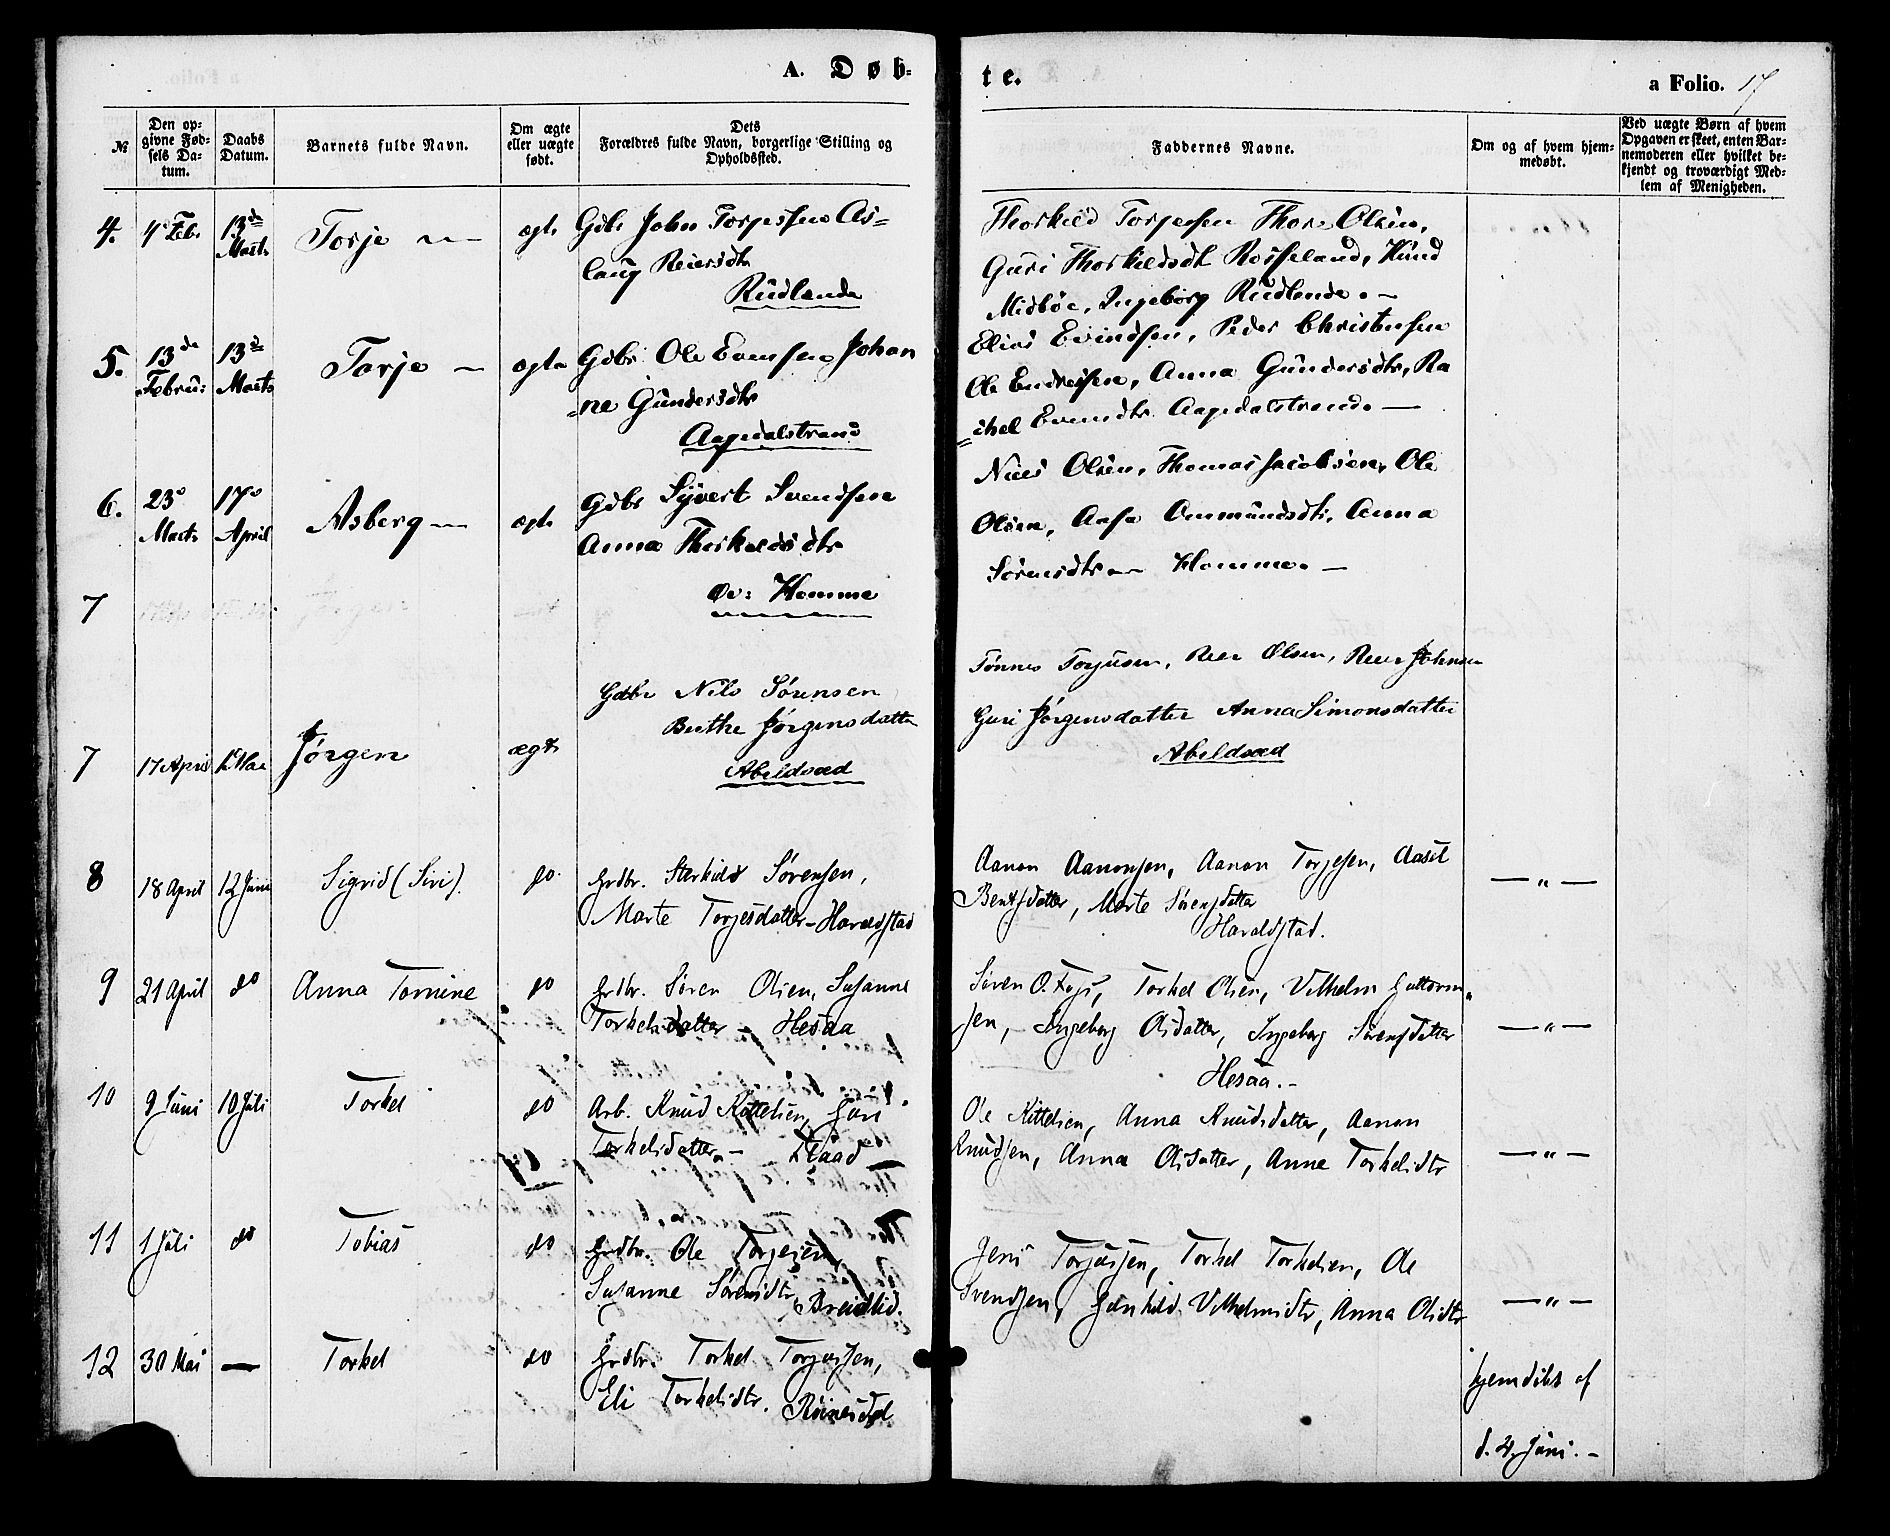 A. Døb-
te.
a Folio. 17
№
Den op-
givne Fød-
sels Da-
tum.
Daabs
Datum.
Barnets fulde Navn.
Om ægte
eller uægte
født.
Dets
Forældres fulde Navn, borgerlige Stilling og
Opholdssted.
Faddernes Navne.
Om og af hvem hjem-
medøbt.
Ved uægte Børn af hvem
Opgaven er skeet, enten Bar-
nemoderen eller hvilket be-
kjendt og troværdigt Med-
lem af Menigheden.
4. 4 Feb. 13de Torje ægte Gdbr John Torjessen As-
Marts
laug Reiersdtr
Rudlende
Thorkild Torjesen Thore Olsen,
Guri Thorkildsdt Rosseland, Knud
Medbøe, Ingeborg Rudlende. —
5. 13de 13de Torje — ægte Gdbr Ole Evensen Johan
Febru: Marts
=ne Gundersdtr
Aapedalstrand
Elias Evindsen, Peder Christensen
Ole Endresen, Anna Gundersdtr, Ra
=chel Evendtr Aapedalstrand. —
6. 23. 17. Asberg — ægte Gdbr Syvert Svendsen
Marts April
Anna Thorkildsdtr
Øv: Homme
Niels Olsen, Thomas Jacobsen, Ole
Olsen, Aase Ommundsdtr, Anna
Sørensdtr — Homme. —
7
7 17 April Jørgen ægte
Gdbr Nils Sørensen
Berthe Jørgensdatter
Abeldsæd
Tønnes Torjusen, Reer Olsen, Reier Johnsen
Guri Jørgensdatter Anna Simonsdatter
Abeldsæd
8 18 April 12 Juni Sigrid (Siri). do. Grdbr. Sterkild Sørensen,
Marte Torjesdatter - Haraldstad
Aanon Aanonsen, Aanon Torjesen, Aasel
Bentsdatter, Marte Sørensdatter
Haraldstad.
— " —
9 21 April do Anna Tomine do Grdbr. Søren Olsen, Susanne
Torkelsdatter - Hesaa
Søren O. Fogs, Torkel Olsen, Vilhelm Guttorm-
sen, - Ingeborg Olsdatter, Ingeborg Sørensdatter
Hesaa. -
— " —
10 9 Juni 10 Juli Torkel do Arb. Knud Kittelsen, Guri
Torkelsdatter. -
Ole Kittelsen, Anna Knudsdatter, Aanon
Knudsen, Anna Olsdatter, Anne Torkelsdtr
— " —
11 1 Juli do Tobias do Grdbr. Ole Torjesen,
Susanne Sørensdtr, Breidlid.
Jens Torjussen, Torkel Torkelsen, Ole
Svendsen, Gunhild Vilhelmsdtr, Anna Olsdtr
— " —
12 30 Mai — Torkel do Grdbr. Torkel Torjussen,
Eli Torkelsdtr. Røinesdal
hjemdøbt af
d. 4. Juni. -